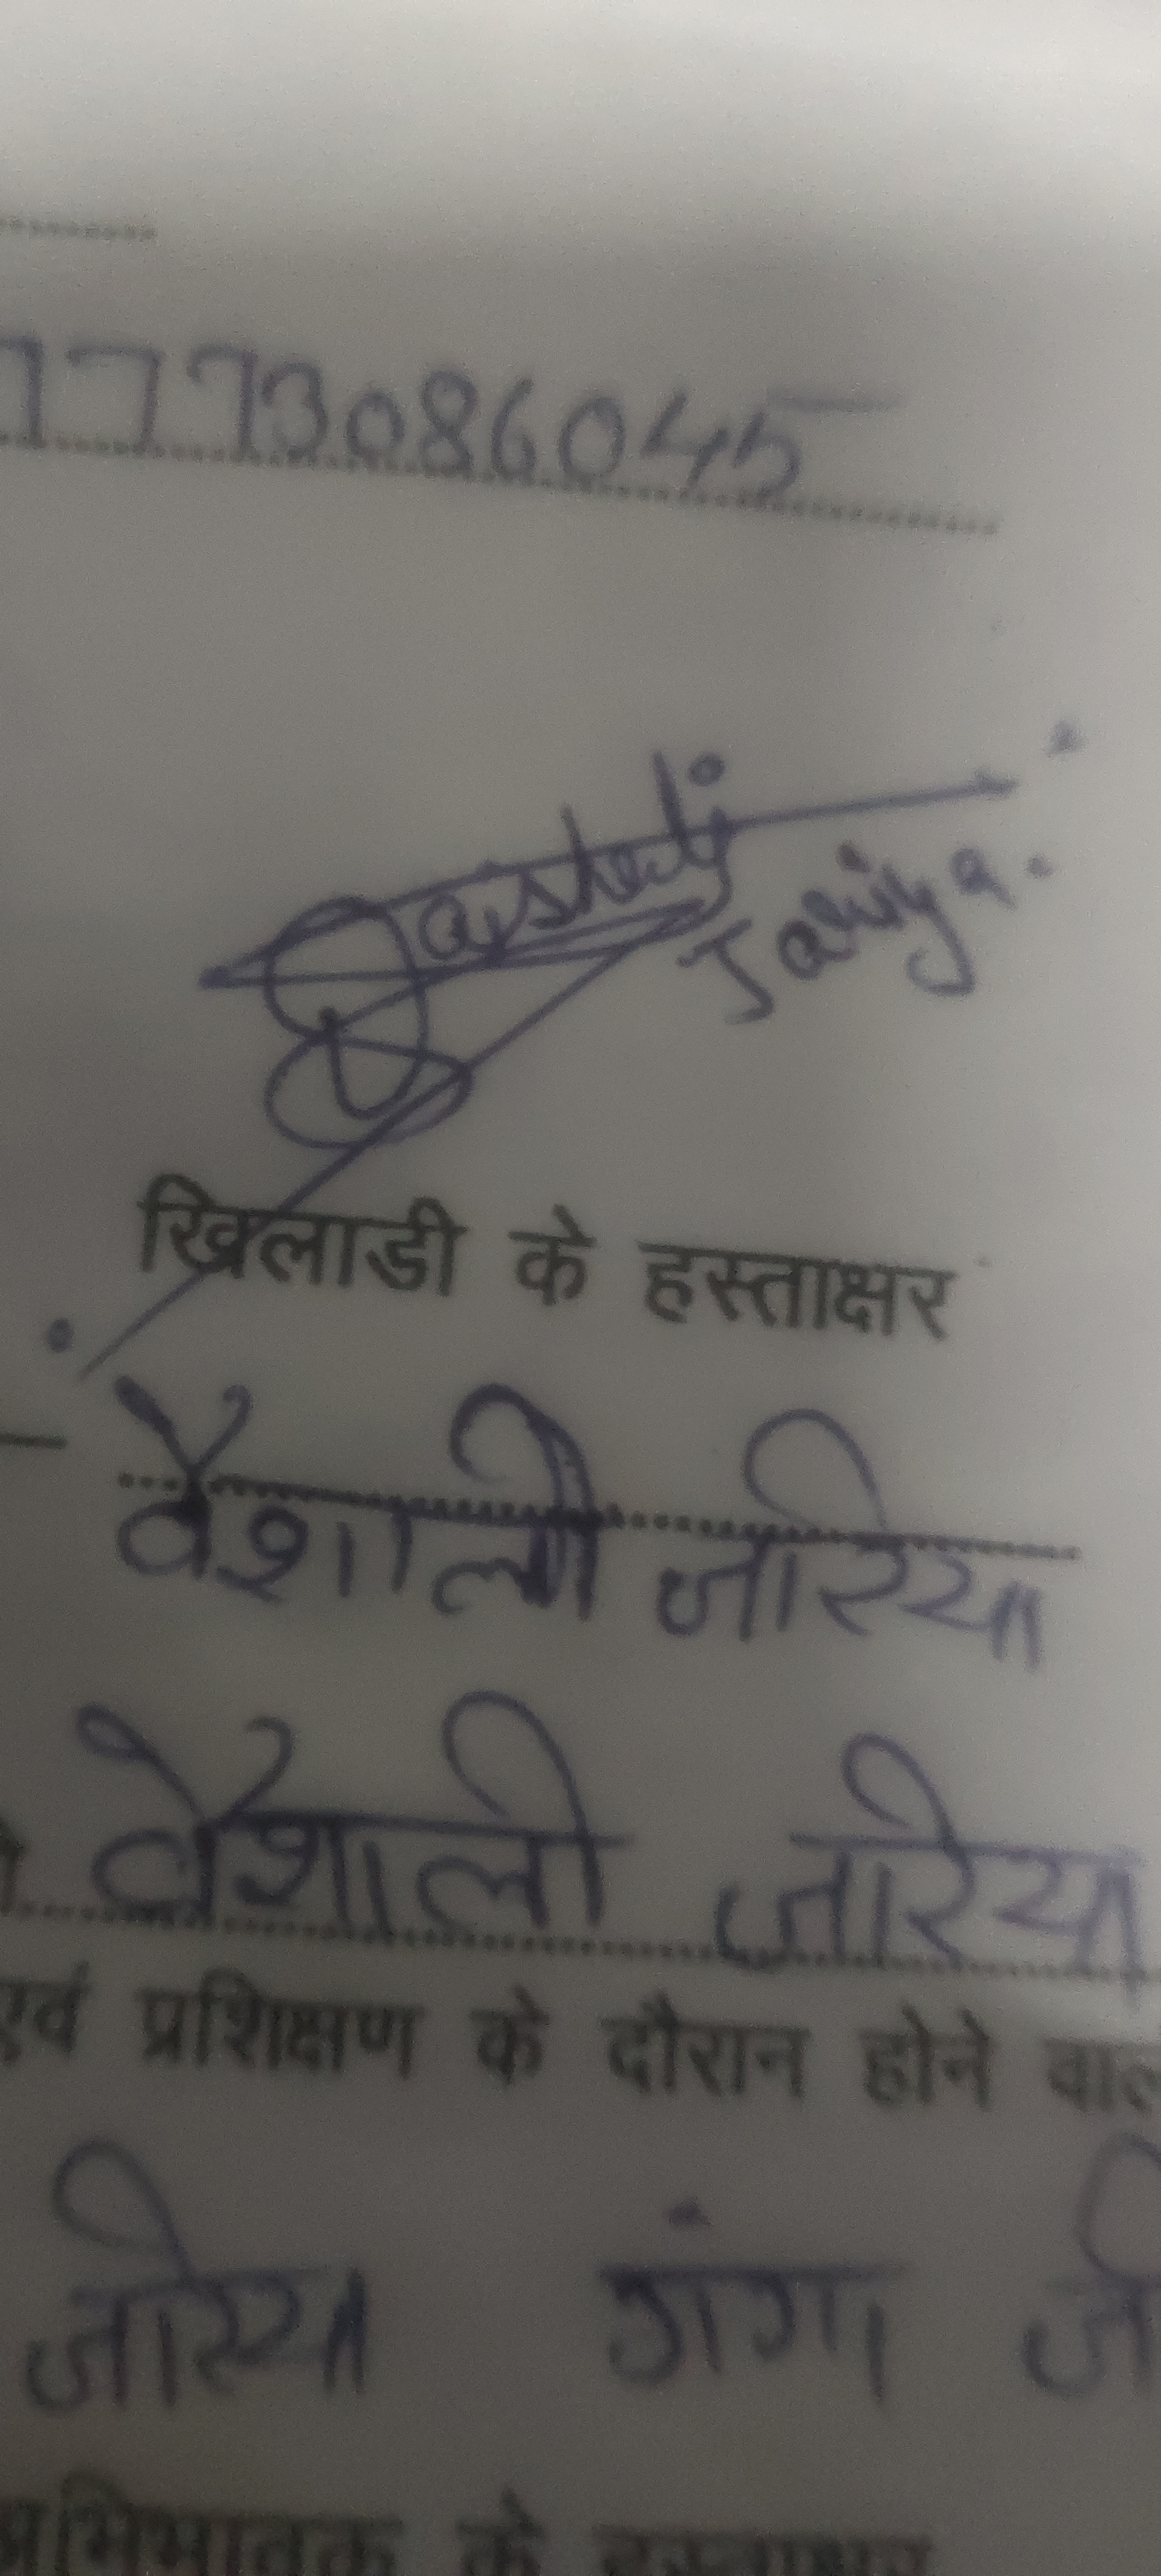 7773086045
Vaishali
Jariya.
खिलाडी के हस्ताक्षर
वैशाली जारिया
वैशाली जारिया
एवं प्रशिक्षण के दौरान होने
जारिया गंगा
अभिभावक के हस्ताक्षर